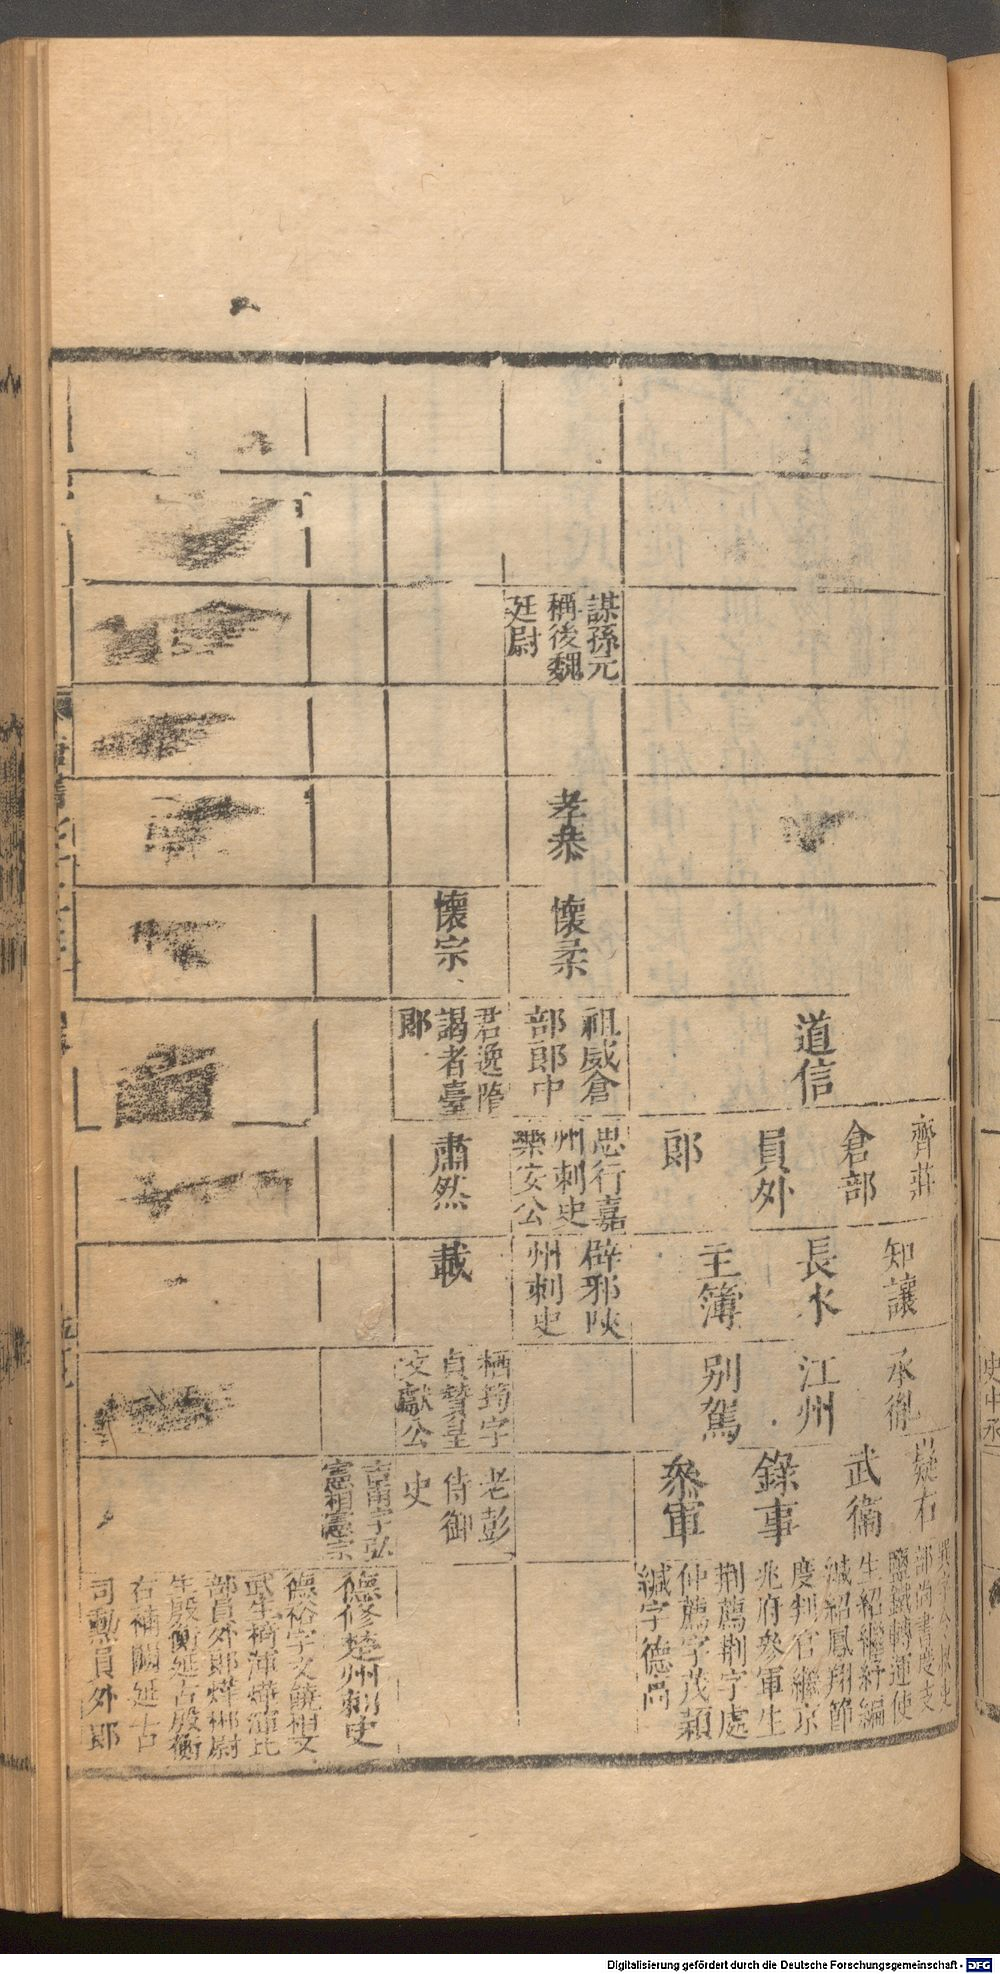 謀孫元
稱後魏
廷尉
孝恭
懷柔
懷宗
道信
祖威倉
部郎中
君逸隋
謁者臺
郎
齊莊
倉部
員外
郎
思行嘉
州刺史
樂安公
肅然
知讓
長水
主簿
辟邪陝
州刺史
載
承胤
江州
別駕
栖筠字
貞一贊皇
文獻公
嶷右
武衞
錄事
叅軍
老彭
侍御
史
吉甫字弘
憲相憲宗
部尚書度支
鹽鐵轉運使
生紹繼紆編
減紹鳳翔節
度判官繼京
兆府參軍生
荆薦荆字處
仲薦字茂穎
緘字德
德修楚州刺史
德裕字文饒相文
武生椅渾燁渾比
部員外郎燁郴尉
生殷衡延古殷衡
右補闕延古
司勲員外郎
Digitalisierung gefördert durch die Deutsche Forschungsgemeinschaft - DFG